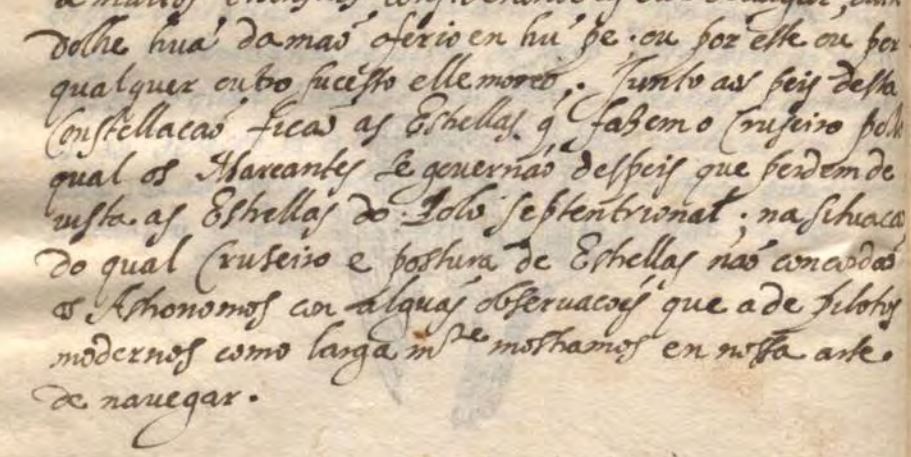 dolhe huã da maõ o ferio en hũ pe. ou por este ou por
qualquer outro sucesso elle moreo. Junto aos peis desta
Constellacaõ ficaõ as Estrellas q̃ fasem o Cruseiro pello
qual os Mareantes se governaõ despeis que perdem de
vista as Estrellas do Polo septentrional; na situaca
do qual Cruseiro e postura de Estrellas naõ concordaõ
os Astronomos con algũas observacois que a de pilotos
modernos como larga m.te mostramos en nossa arte
de navegar.